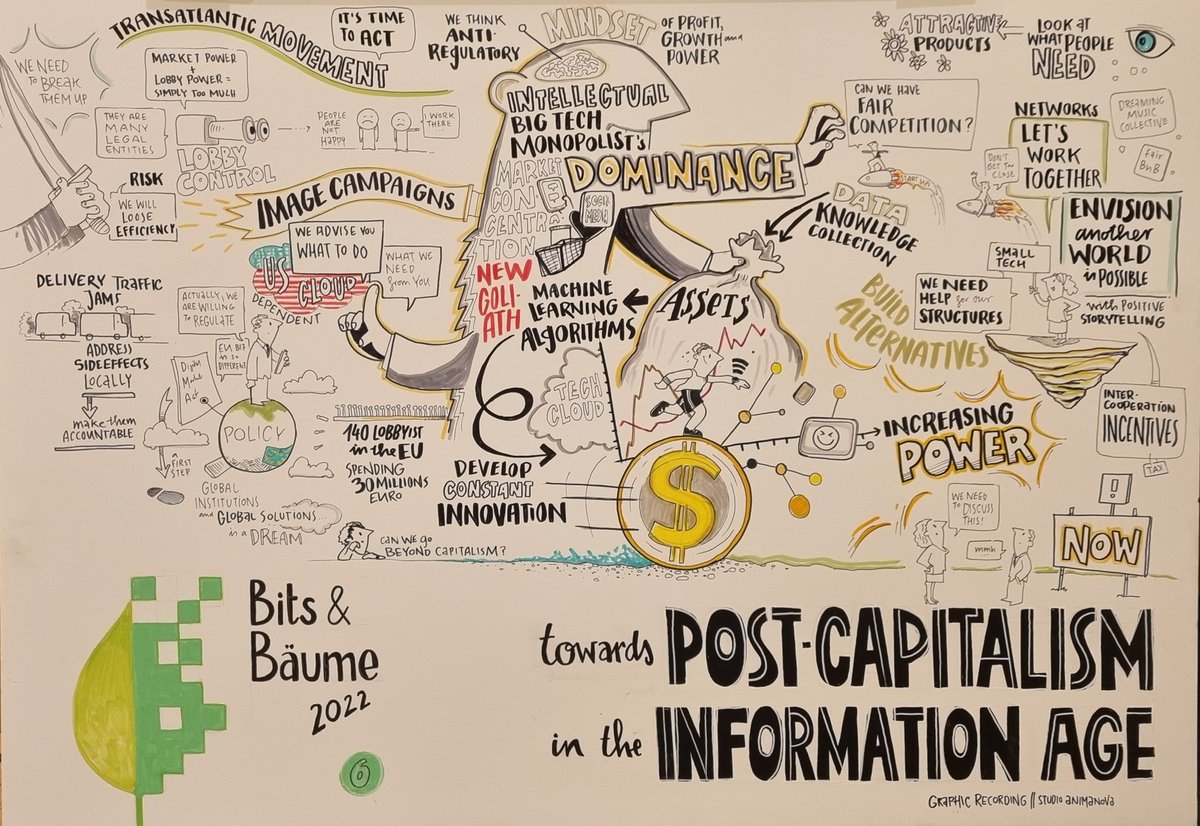 TRANSATLANTIC MOVEMENT
IT'S TIME
TO ACT
WE THINK
ANTI-
REGULATORY
MINDSET
OF PROFIT,
GROWTH and
POWER
ATTRACTIVE
PRODUCTS
LOOK AT
WHAT PEOPLE
NEED
WE NEED
TO BREAK
THEM UP
MARKET POWER
+
LOBBY POWER =
SIMPLY TOO MUCH
THEY ARE
MANY
LEGAL
ENTITIES
LOBBY
CONTROL
PEOPLE
ARE
NOT
HAPPY
I WORK
THERE...
RISK
WE WILL
LOOSE
EFFICIENCY
IMAGE CAMPAIGNS
INTELLECTUAL
BIG TECH
MONOPOLIST'S
DOMINANCE
MARKET
CON-
CENTRA-
TION
SOCIAL
MEDIA
NEW
GOLI-
ATH
CAN WE HAVE
FAIR
COMPETITION?
START UP
DON'T
GET TOO
CLOSE
NETWORKS
LET'S
WORK
TOGETHER
DREAMING
MUSIC
COLLECTIVE
Fair
BnB
DATA
KNOWLEDGE
COLLECTION
ENVISION
another
WORLD
is POSSIBLE
with POSITIVE
STORYTELLING
SMALL
TECH
WE NEED
HELP for our
STRUCTURES
BUILD
ALTERNATIVES
WE ADVISE YOU
WHAT TO DO
WHAT WE
NEED
from YOU
US CLOUD
DEPENDENT
DELIVERY TRAFFIC
JAMS
ADDRESS
SIDEEFFECTS
LOCALLY
make them
ACCOUNTABLE
ACTUALLY, WE
ARE WILLING
TO REGULATE
EU BIZ
IS SO
DIFFERENT
Digital
Markets
Act
POLICY
A FIRST
STEP
GLOBAL
INSTITUTIONS
and GLOBAL SOLUTIONS...
is a DREAM
140 LOBBYIST
in the EU
SPENDING
30 MILLIONS
EURO
CAN WE GO
BEYOND CAPITALISM?
MACHINE
LEARNING
ALGORITHMS
ASSETS
TECH
CLOUD
DEVELOP
CONSTANT
INNOVATION
$
INCREASING
POWER
INTER-
COOPERATION
INCENTIVES
TAX
WE NEED
TO DISCUSS
THIS!
mmh...
!
NOW
Bits &
Bäume
2022
6
towards POST-CAPITALISM
in the INFORMATION AGE
GRAPHIC RECORDING // STUDIO ANIMANOVA